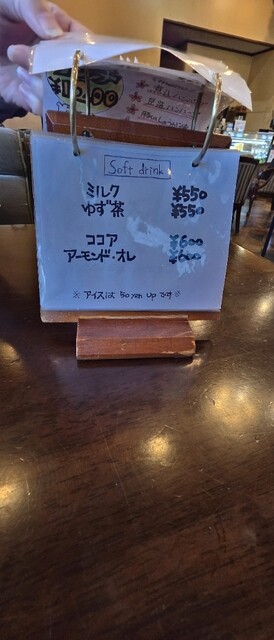 Soft drink
ミルク ¥550
ゆず茶 ¥550
ココア ¥600
アーモンド・オレ ¥600
※アイスは 50 yen up です※